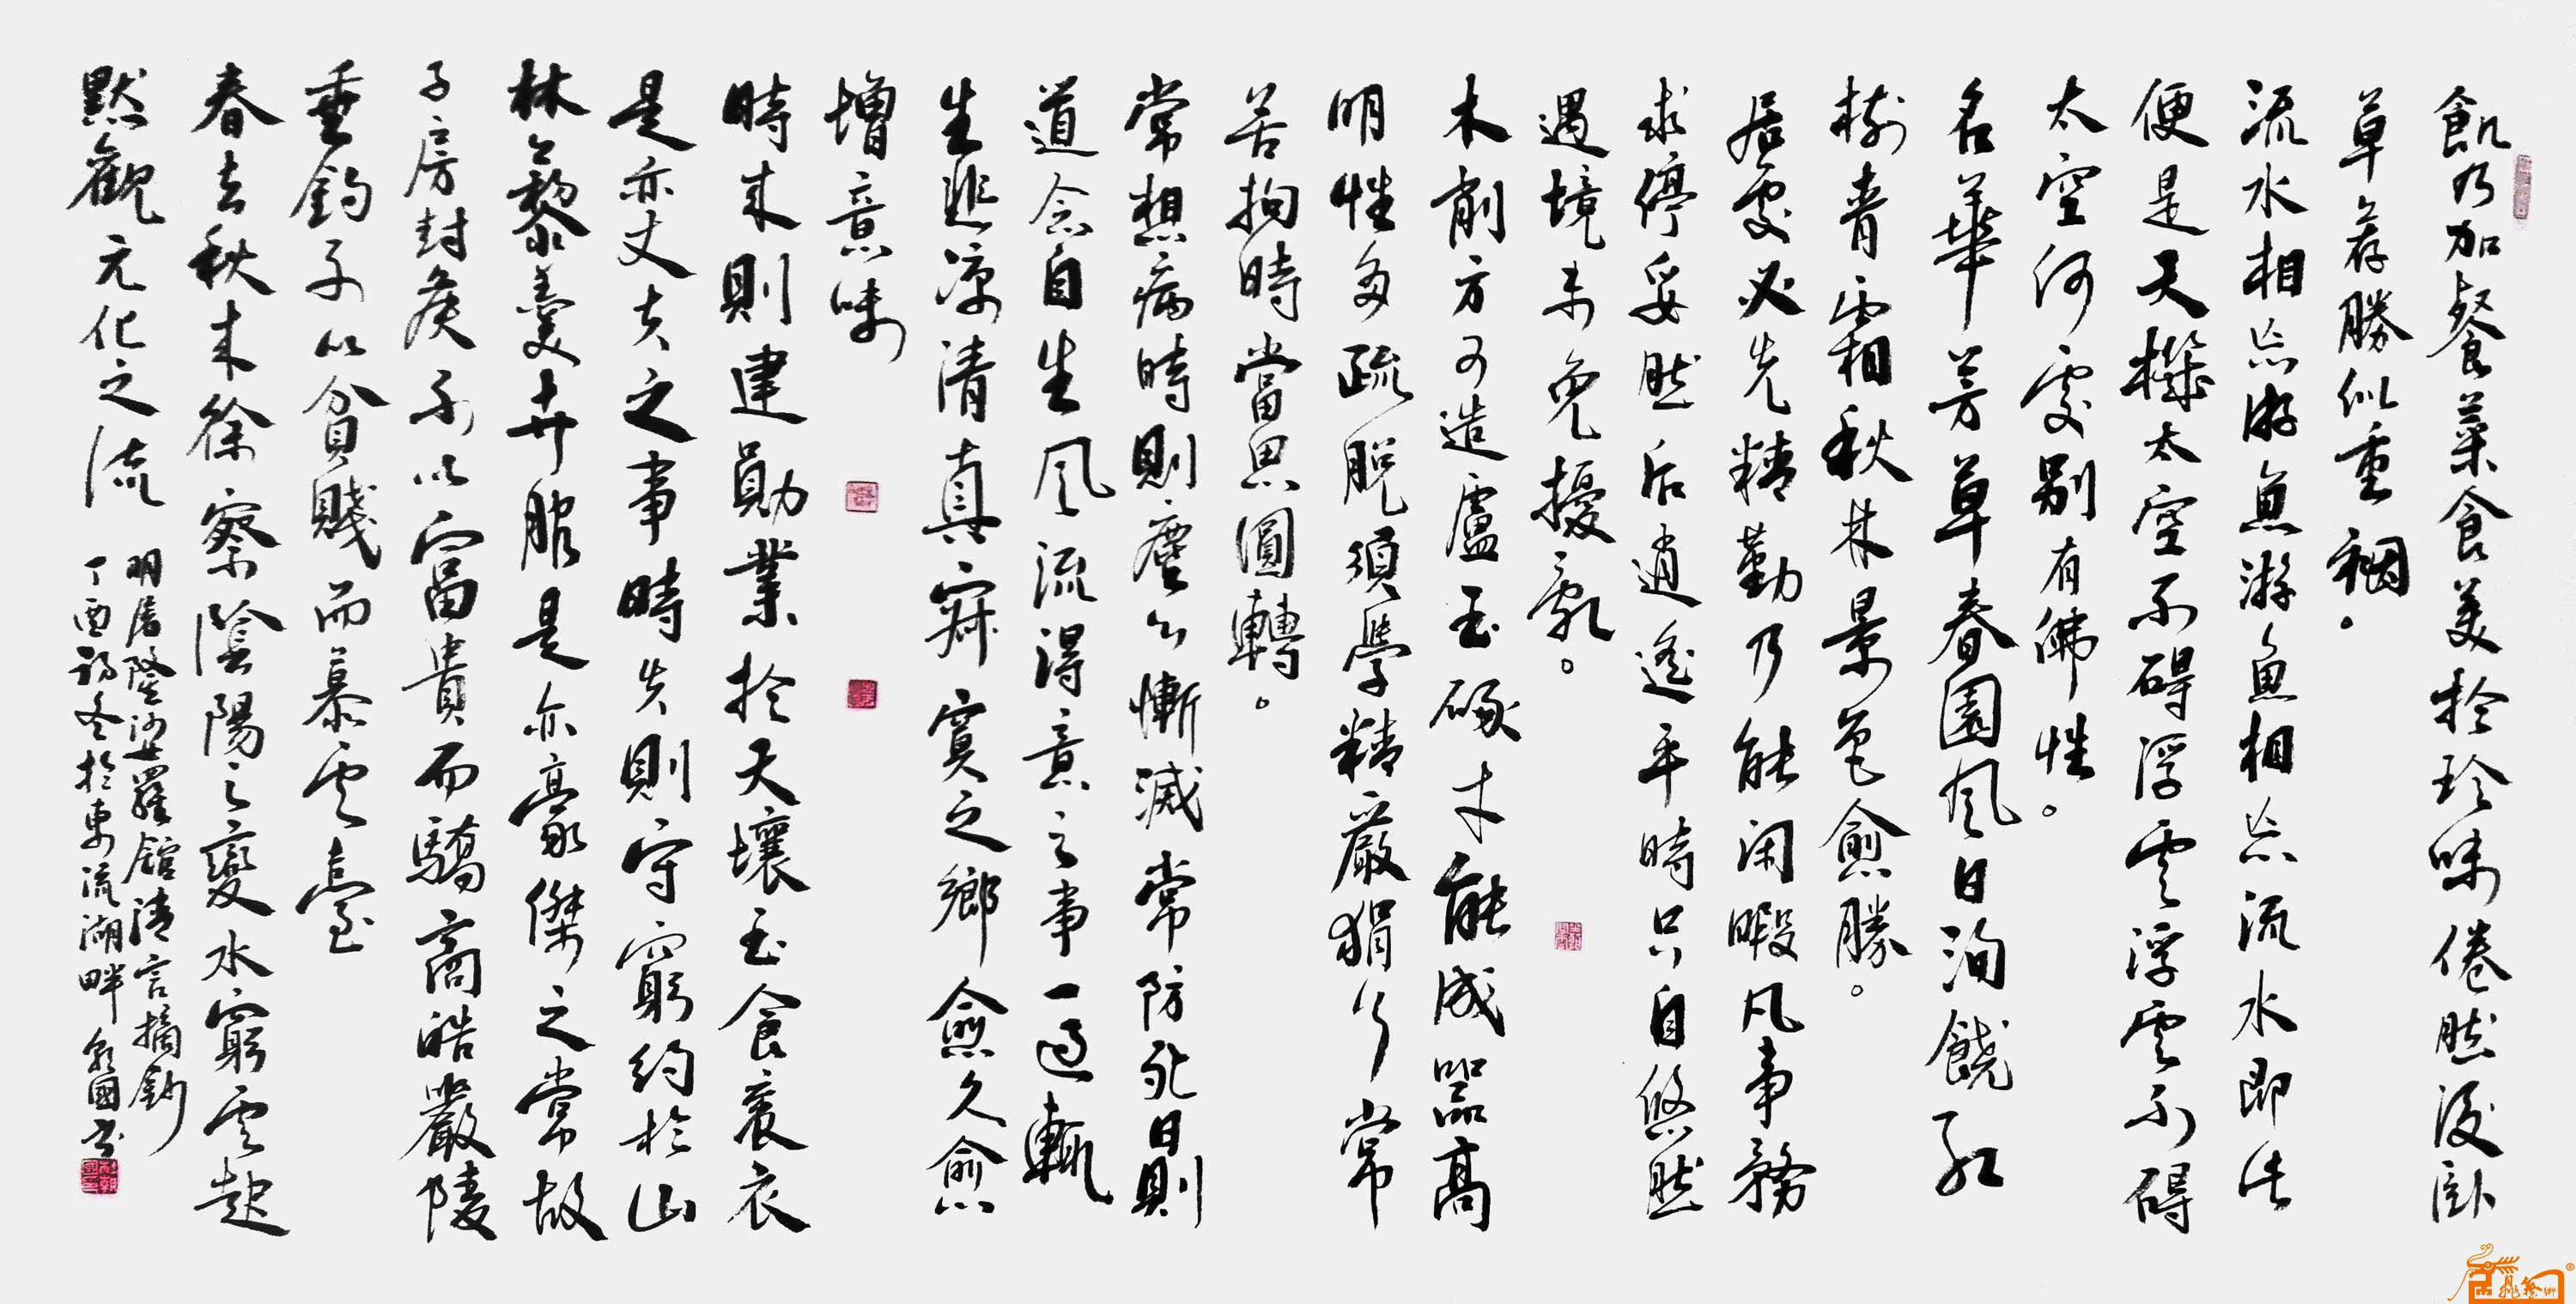 飢乃加餐菜食美於珍味倦然後卧
草荐勝似重裀。
流水相忘游魚游魚相忘流水即此
便是天機太空不碍浮雲浮雲不碍
太空何處別有佛性。
名華芳草春園風日洵饒紅
樹青霜秋林景色愈勝。
居處必先精勤乃能闲暇凡事務
求停妥然后逍遙平時只自悠然
遇境未免擾亂。
木削方可造廬玉琢才能成器高
明性多疏脫須學精嚴狷介常
苦拘時當思圓轉。
常想病時則塵心漸減常防死日則
道念自生風流得意之事一過輒
生悲凉清真寂寞之鄉愈久愈
增意味
時來則建勛業於天壤玉食衮衣
是亦丈夫之事時失則守窮約於山
林藜羹卉服是亦豪傑之常故
子房封侯不以富貴而驕商皓嚴陵
垂釣子不以貧賤而慕雲臺
春去秋來徐察陰陽之變水窮雲起
默觀元化之流
明屠隆娑羅館清言摘鈔
丁酉初冬於東流湖畔 國書